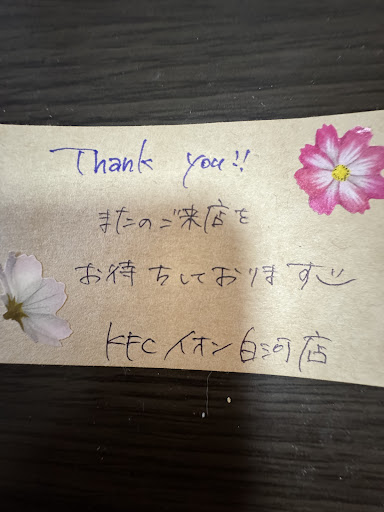 Thank you!!
またのご来店を
お待ちしております
KFC イオン白河店